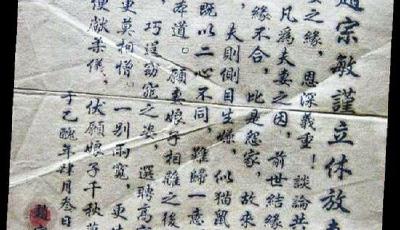 趙宗敏謹立休放
之緣，恩深義重！談論共
凡為夫妻之因，前世結緣
緣不合，此是怨家，故來
，夫則側目生嫌，似貓鼠
既以二心不同，難歸一意
本道。願妻娘子相離之後
，巧逞窈窕之姿，選聘高官
更莫相憎。一別兩寬，更生
便獻柔儀。伏願娘子千秋萬
于 年肆月叁日
趙